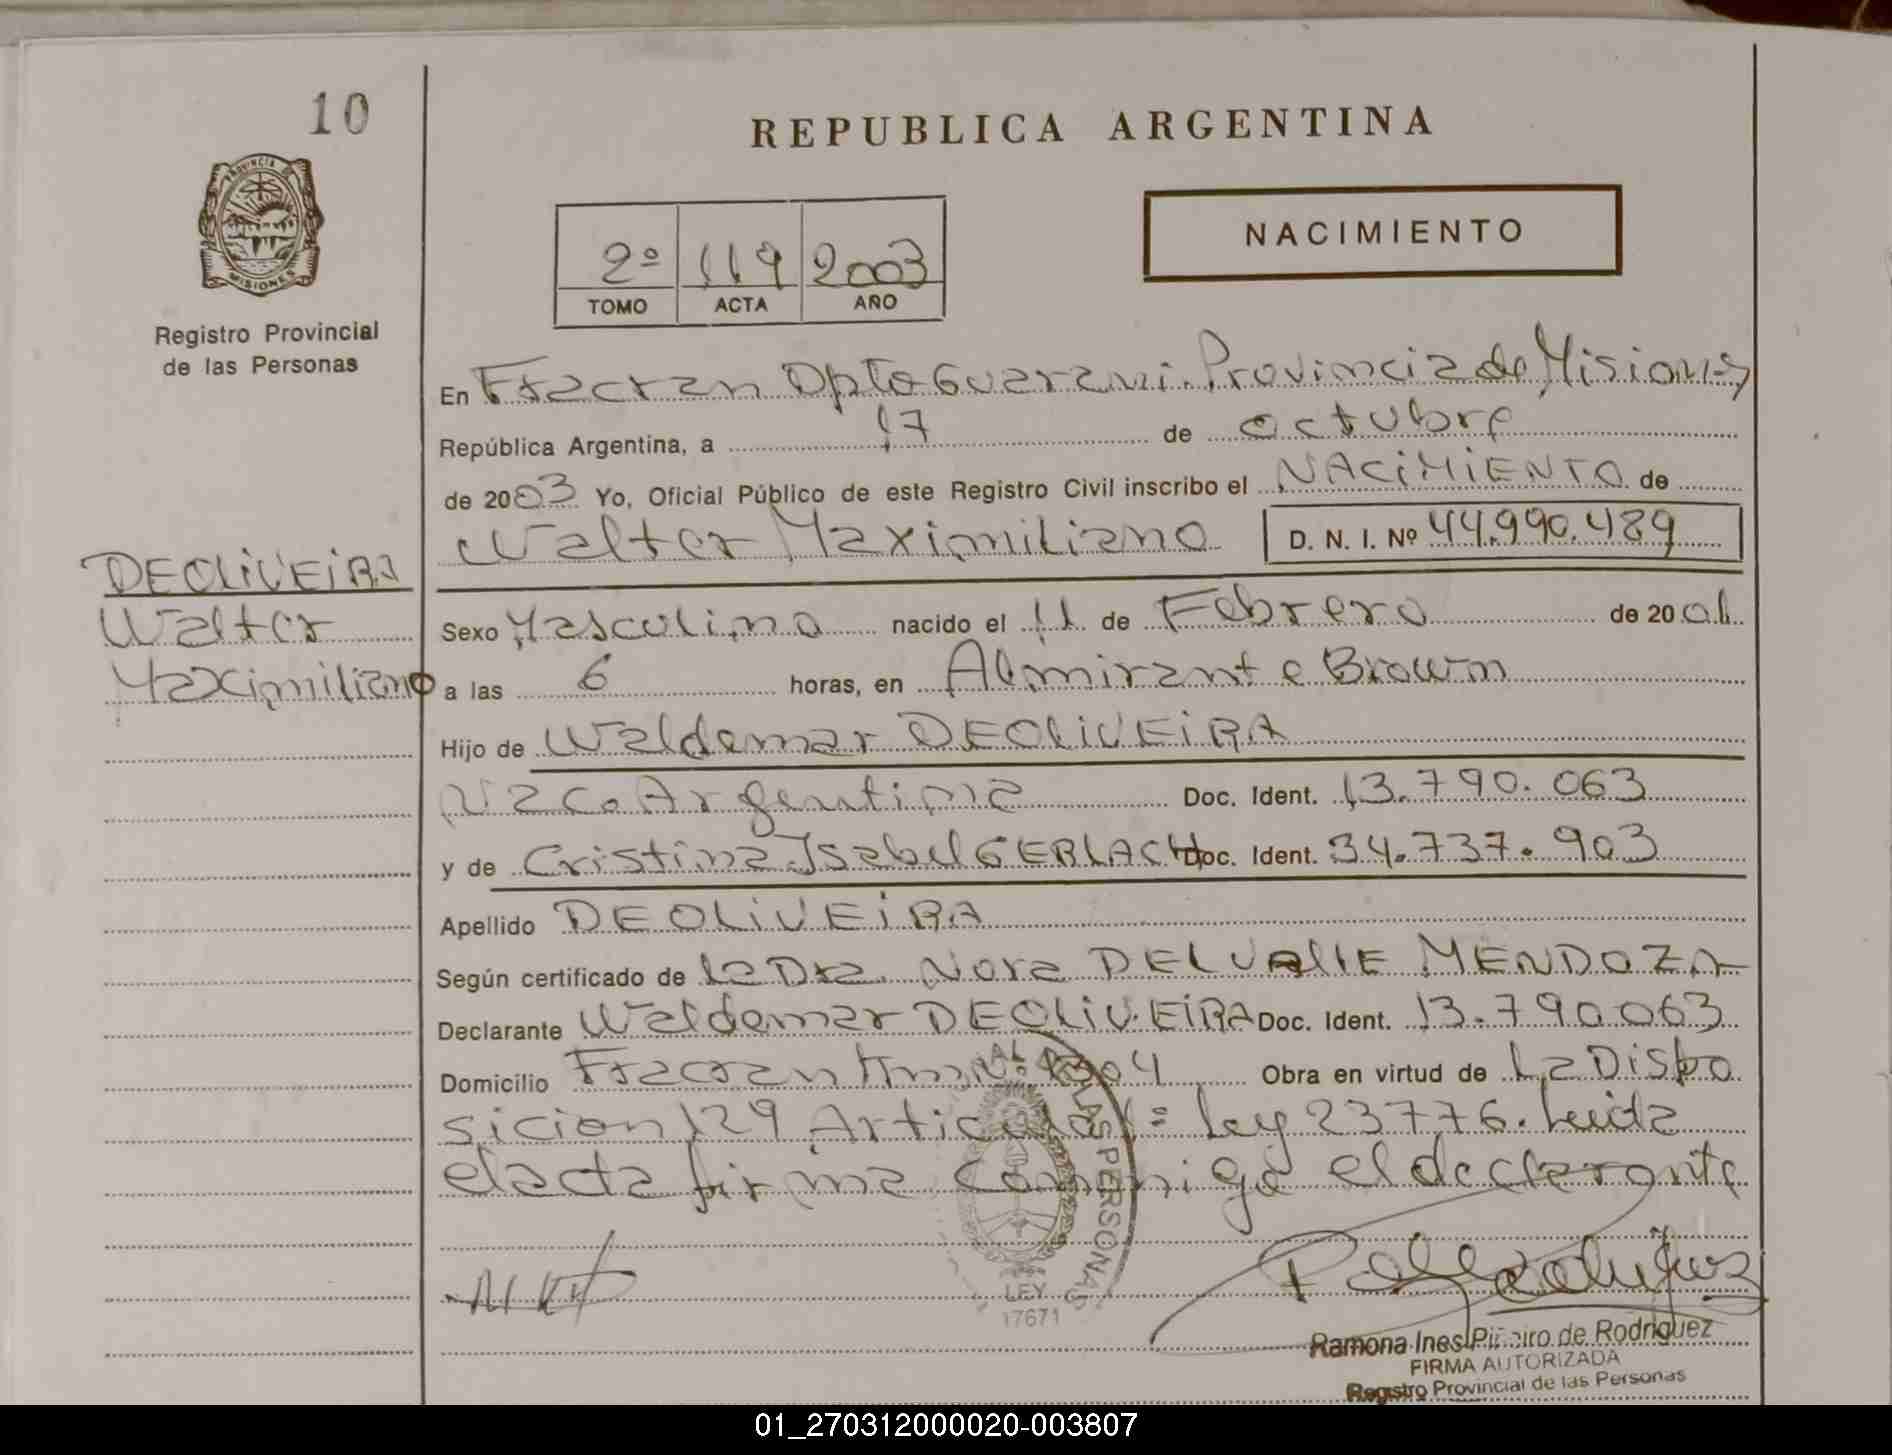 10
REPUBLICA ARGENTINA
PROVINCIA DE
MISIONES
Registro Provincial
de las Personas
2º 119 2003
TOMO ACTA AÑO
NACIMIENTO
En Fracran Dpto Guarani. Provincia de Misiones
República Argentina, a 17 de octubre
de 2003 Yo, Oficial Público de este Registro Civil inscribo el NACIMIENTO de
Walter Maximiliano D. N. I. Nº 44.990.489
DEOLIVEIRA
Walter
Maximiliano
Sexo Masculino nacido el 11 de Febrero de 2001
a las 6 horas, en Almirante Brown
Hijo de Waldemar DEOLIVEIRA
Nac. Argentina Doc. Ident. 13.790.063
y de Cristina Isabel GERLACH Doc. Ident. 34.737.903
Apellido DEOLIVEIRA
Según certificado de la Dra. Nora DELVALLE MENDOZA
Declarante Waldemar DEOLIVEIRA Doc. Ident. 13.790.063
Domicilio Fracran Obra en virtud de La Dispo
sicion 129 Articulo 1º Ley 23776. Leida
el acta firma conmigo el declarante
LAS PERSONAS
LEY
17671
Ramona Ines Piñeiro de Rodriguez
FIRMA AUTORIZADA
Registro Provincial de las Personas
01_270312000020-003807